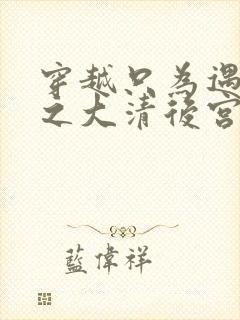 穿越只為遇
之大清後宮
藍偉祥